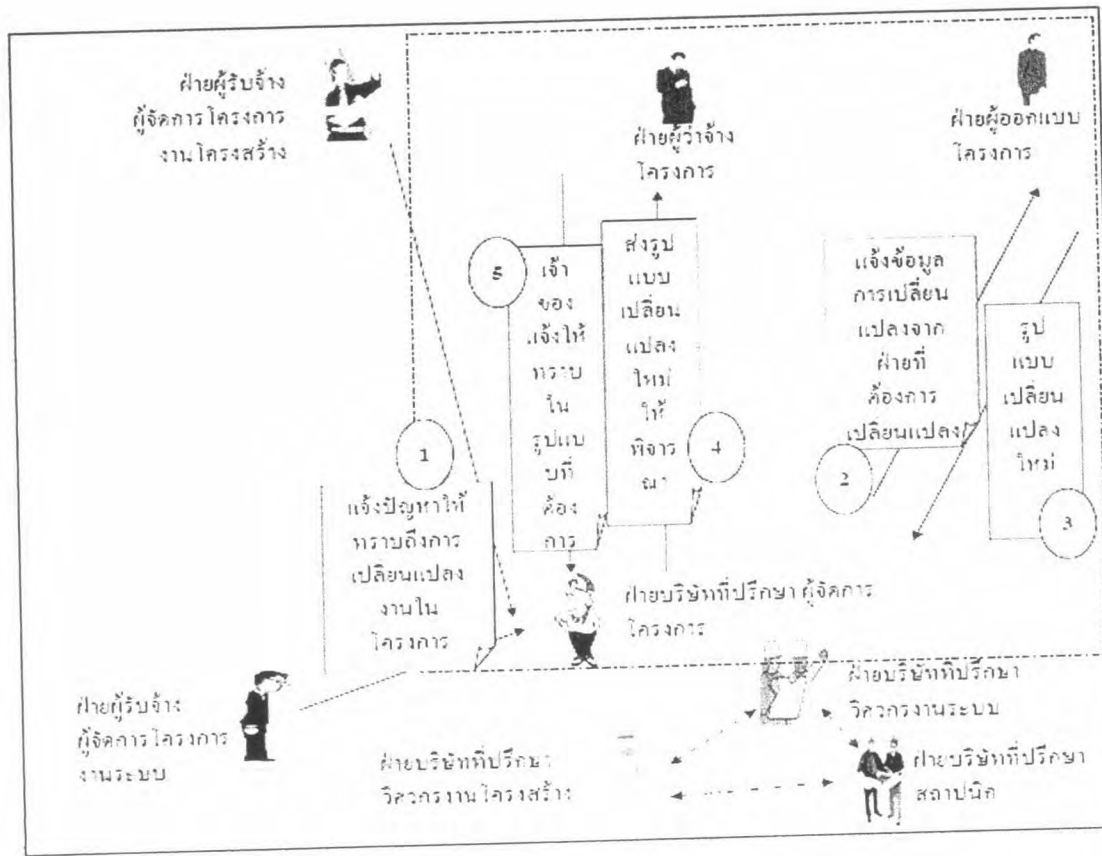 ฝ่ายผู้รับจ้าง
ผู้จัดการโครงการ
งานโครงสร้าง
ฝ่ายผู้ว่าจ้าง
โครงการ
ฝ่ายผู้ออกแบบ
โครงการ
5
เจ้า
ของ
แจ้งให้
ทราบ
ใน
รูปแบ
บที่
ต้อง
การ
ส่งรูป
แบบ
เปลี่ยน
แปลง
ใหม่
ให้
พิจาร
ณา
4
แจ้งข้อมูล
การเปลี่ยน
แปลงจาก
ฝ่ายที่
ต้องการ
เปลี่ยนแปลง
2
รูป
แบบ
เปลี่ยน
แปลง
ใหม่
3
1
แจ้งปัญหาให้
ทราบถึงการ
เปลี่ยนแปลง
งานใน
โครงการ
ฝ่ายบริษัทที่ปรึกษา ผู้จัดการ
โครงการ
ฝ่ายผู้รับจ้าง
ผู้จัดการโครงการ
งานระบบ
ฝ่ายบริษัทที่ปรึกษา
วิศวกรงานระบบ
ฝ่ายบริษัทที่ปรึกษา
วิศวกรงานโครงสร้าง
ฝ่ายบริษัทที่ปรึกษา
สถาปนิก